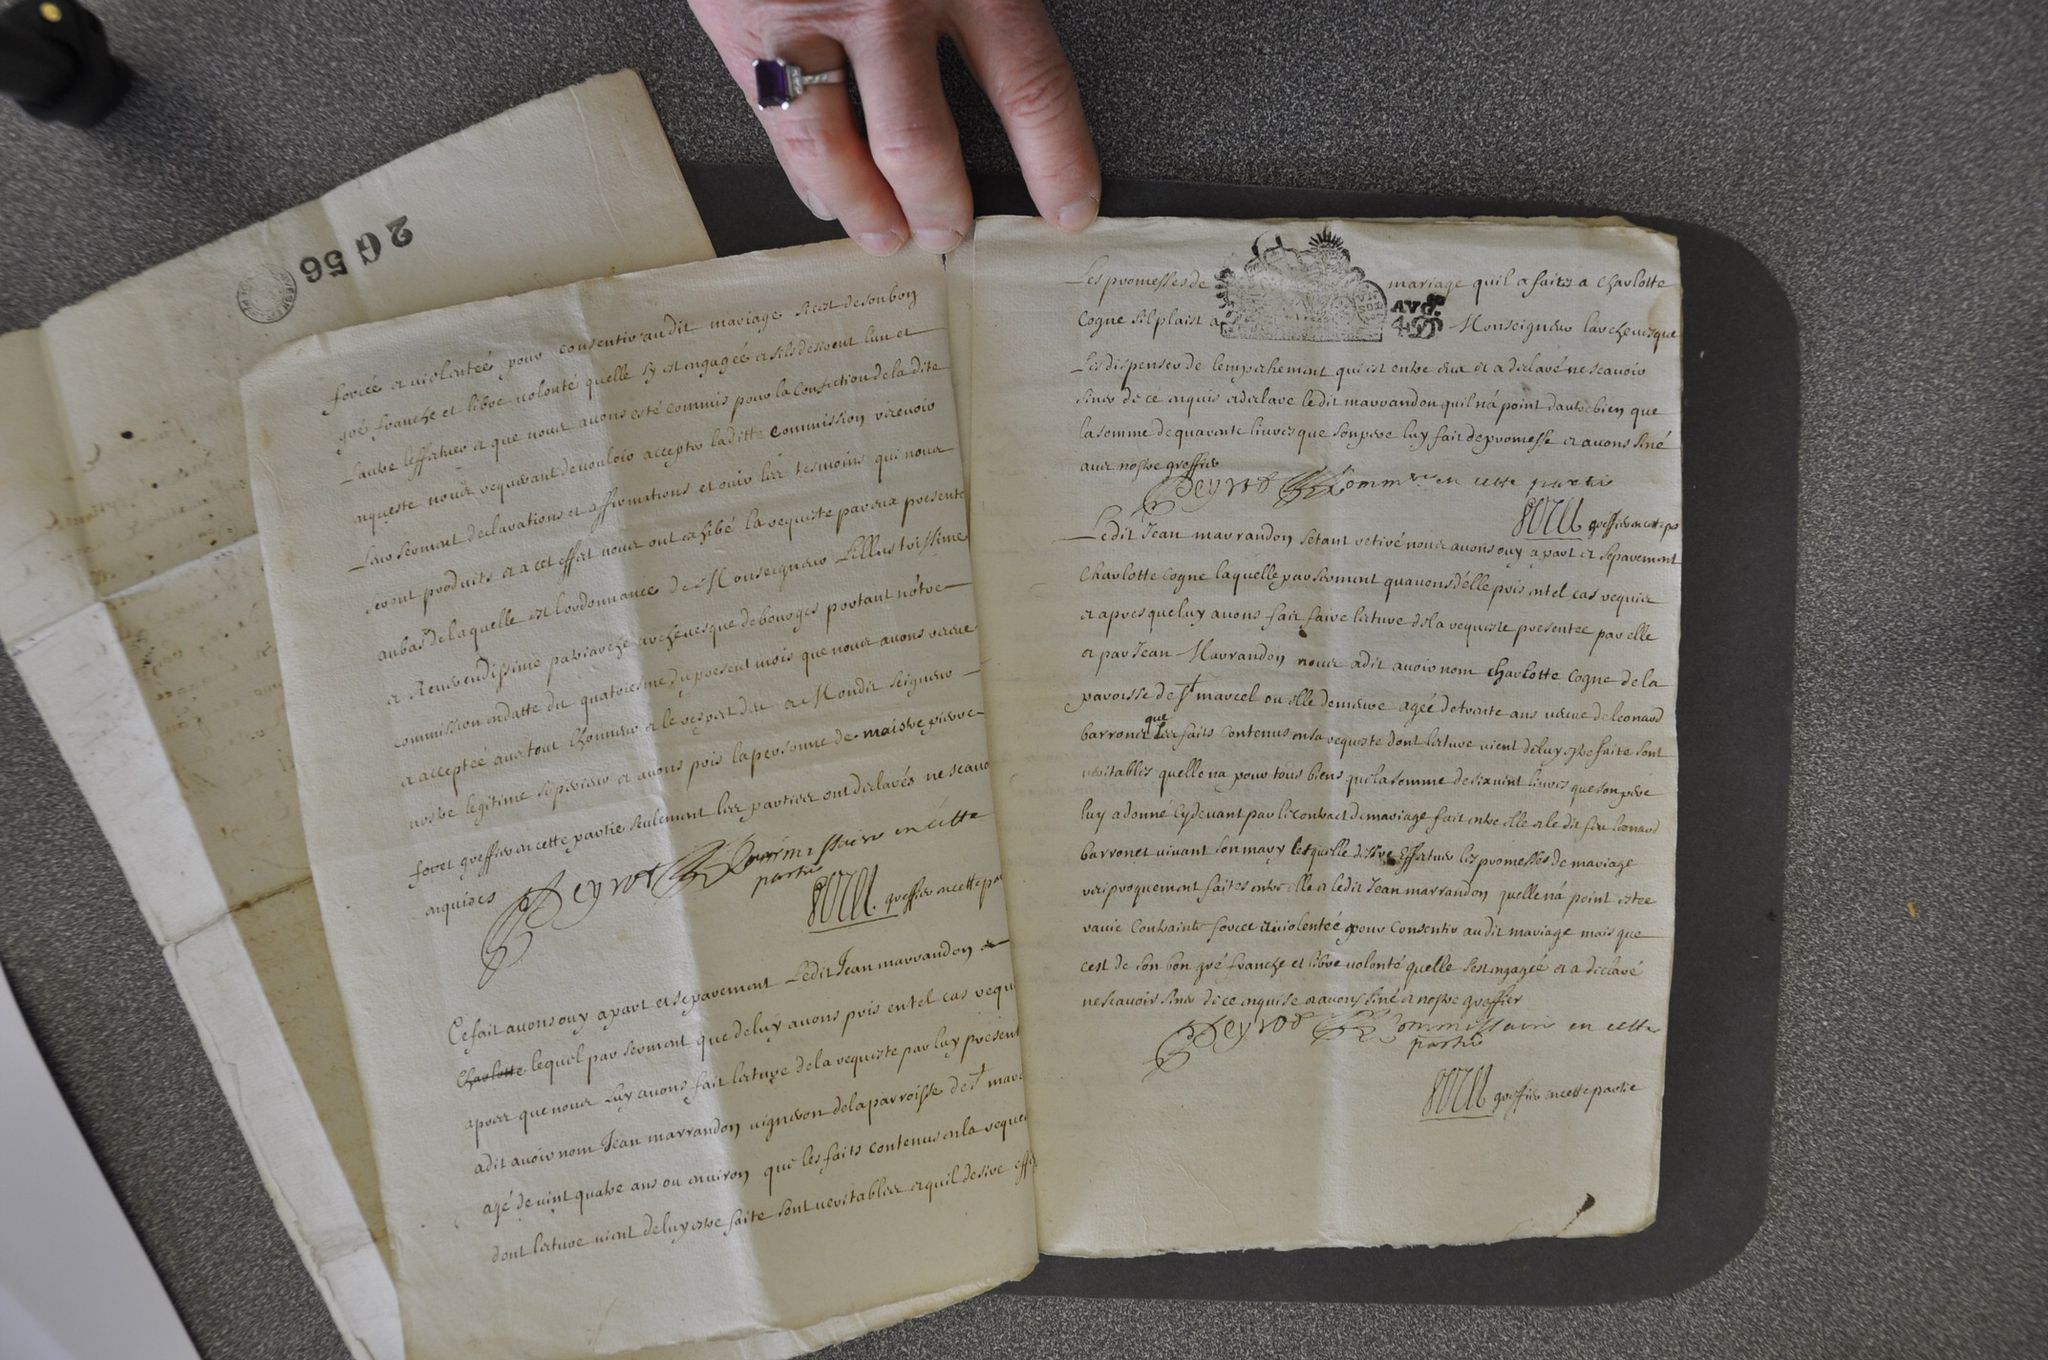 2 G 56
forcée et violentée pour consentir au dit mariage si cest de son bon
gré franche et libre volonté quelle sy est engagée et sils desirent lun et
lautre leffectuer et que nous auons esté commis pour la confection de la dite
enqueste nous requerant de vouloir accepter laditte commission receuoir
leur serment declarations et affirmations et ouir les tesmoins qui nous
seront produits et a cet effect nous ont exhibé la requeste par eux presenté
au bas de laquelle est lordonnance de Monseigneur Lillustrissime
et Reuerendissime patriarche archeuesque de bourges portant nôtre
commission en datte du quatriesme du present mois que nous auons receue
et acceptée auec tout lhonneur et le respect deu a Mondit seigneur
nostre legitime superieur et auons pris la personne de maistre pierre
foret greffier en cette partie seulement les parties ont declarés ne scauo
enquises
Peyrot Commissaire en cette
partie
greffier en cette par
Ce fait auons ouy a part et separement Ledit Jean marrandon et
Charlotte lequel par serment que de luy auons pris en tel cas requ
apres que nous luy auons fait lecture de la requeste par luy present
a dit auoir nom Jean marrandon uigneron de la parroisse de St marc
agé de uint quatre ans ou enuiron que les faits contenus en la reque
dont lecture uient de luy estre faite sont ueritables et quil desire effe
Les promesses de mariage quil a faites a Charlotte
Cogne sil plaist a Monseigneur larcheuesque
Les dispenser de lempechement qui est entre eux et a declaré ne scauoir
siner de ce enquis et declare ledit marrandon quil nà point dautre bien que
la somme de quarente liures que son pere luy fait de promesse et auons siné
auec nostre greffier
Peyrot Commre en cette partie
greffier en cette par
Ledit Jean marrandon sétant retiré nous auons ouy a part et separement
Charlotte Cogne laquelle par serment quauons délle pris en tel cas requis
et apres que luy auons fait faire lecture de la requeste presentée par elle
et par Jean Marrandon nous a dit auoir nom Charlotte Cogne de la
paroisse de St marcel ou elle demeure agée de trente ans ueuue de leonard
barronet que les faits contenus en sa requeste dont lecture uient de luy estre faite sont
ueritables quelle na pour tous biens que la somme de six uint liures que son pere
luy a donné cy deuant par le contract de mariage fait entre elle et le dit feu leonard
barronet uiuant son mary laquelle desire effectuer les promesses de mariage
reciproquement faites entre elle et ledit Jean marrandon quelle nà point estee
rauie Contrainte forcee et uiolentée pour Consentir au dit mariage mais que
cest de son bon gré franche et libre uolonté quelle sest engagée et a declaré
ne scauoir siner de ce enquise et auons siné et nostre greffier
Peyrot Commissaire en cette
partie
greffier en cette partie